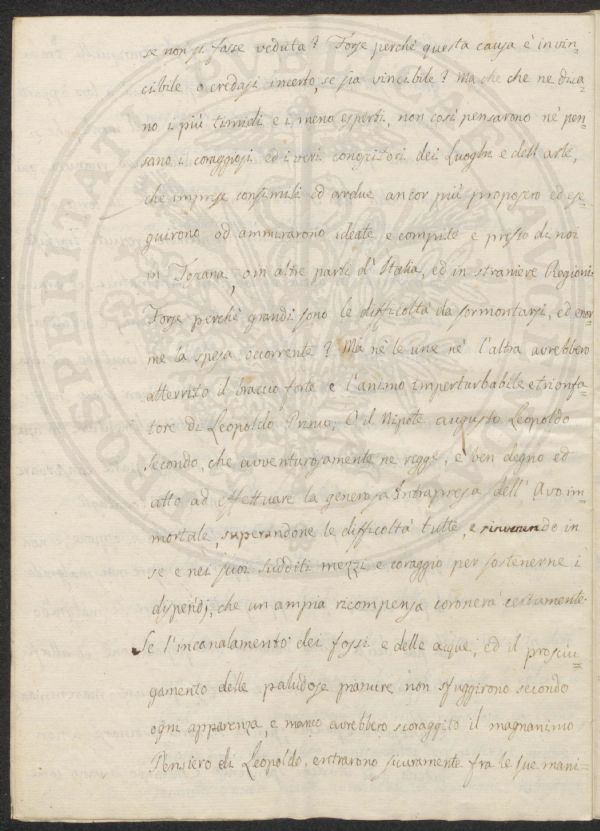 se non si fasse veduta? Forse perchè questa causa è invin=
cibile o credasi incerto, se sia vincibile? Ma che che ne dica=
no i più timidi e i meno esperti, non così pensarono nè pen=
sano i coraggiosi ed i veri conoscitori dei Luoghi e dell'arte,
che imprese consimili ed ardue ancor più proposero ed ese=
guirono od ammirarono ideate e compite e presso di noi
in Toscana, o in altre parte d'Italia, ed in straniere Regioni.
Forse perchè grandi sono le difficoltà da sormontarsi, ed enor=
me la spesa occorrente? Ma nè le une nè l'altra avrebbero
atterrito il braccio forte e l'animo imperturbabile e trionfa=
tore di Leopoldo Primo; E il Nipote augusto Leopoldo
Secondo, che avventurosamente ne regge, è ben degno ed
atto ad effettuare la generosa Intrapresa dell'Avo im=
mortale, superandone le difficoltà tutte, e rinvenendo in
se e nei suoi Sudditi mezzi e coraggio per sostenerne i
dispendj, che un ampia ricompensa coronerà certamente.
Se l'incanalamento dei fossi e delle acque, ed il prosciu=
gamento delle paludose pianure non sfuggirono secondo
ogni apparenza, e manco avrebbero scoraggito il magnanimo
Pensiero di Leopoldo, entrarono sicuramente fra le sue mani=
PROSPERITATI PUBLICAE